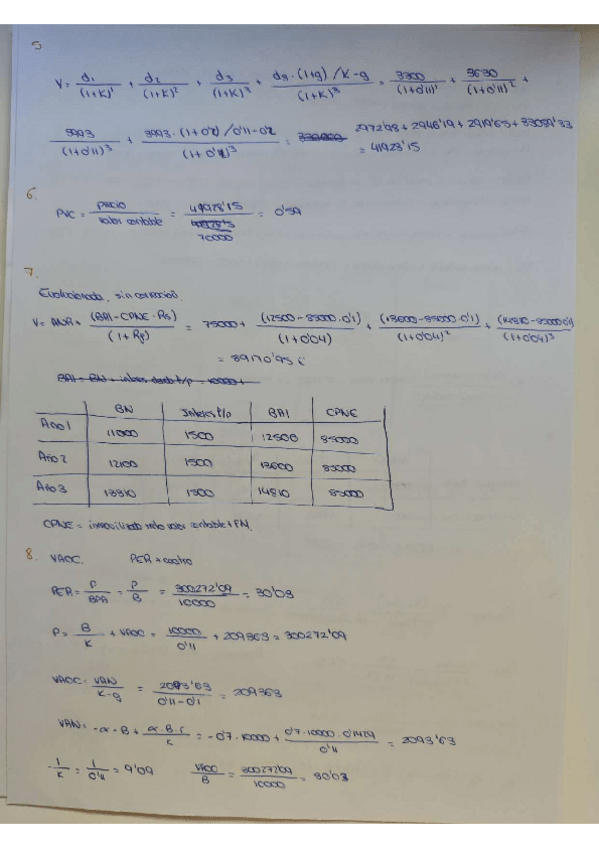 5
V = d1/(1+K)¹ + d2/(1+K)² + d3/(1+K)³ + d3·(1+g)/K-g / (1+K)³ = 3300/(1+0'11)¹ + 3630/(1+0'11)² +
3993/(1+0'11)³ + 3993·(1+0'2)/0'11-0'2 / (1+0'11)³ = 2972'98 + 2946'19 + 2919'65 + 33089'33
= 41928'15
6.
PVC = precio/valor contable = 41928'15/70000 = 0'59
7.
Evolucionada, sin corrección.
V = ANR + (BAI-CPNE·Rf)/(1+Rf) = 75000 + (12500-85000·0'1)/(1+0'04) + (13600-85000·0'1)/(1+0'04)² + (14810-85000·0'1)/(1+0'04)³
= 89170'95 €
BAI = BN + interes deuda l/p = 10000 +
BN Interes l/p BAI CPNE
Año 1 11000 1500 12500 85000
Año 2 12100 1500 13600 85000
Año 3 13310 1500 14810 85000
CPNE = inmovilizado neto valor contable + FM.
8. VAOC. PER + cuatro
PER = P/BPA = P/B = 300272'09/10000 = 30'03
P = B/K + VAOC = 10000/0'11 + 209363 = 300272'09
VAOC = VAN/K-g = 2093'63/0'11-0'1 = 209363
VAN = -α·B + α·B·r/K = -0'7·10000 + 0'7·10000·0'1429/0'11 = 2093'63
1/K = 1/0'11 = 9'09 VAOC/B = 300272'09/10000 = 30'03